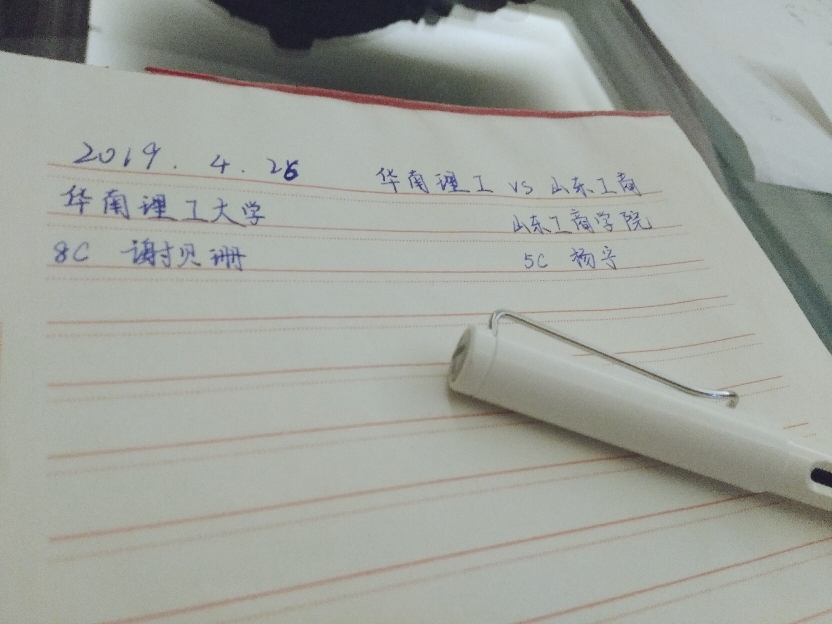 2019.4.26 华南理工 vs 山东工商
华南理工大学 山东工商学院
8C 谢贝珊 5C 杨